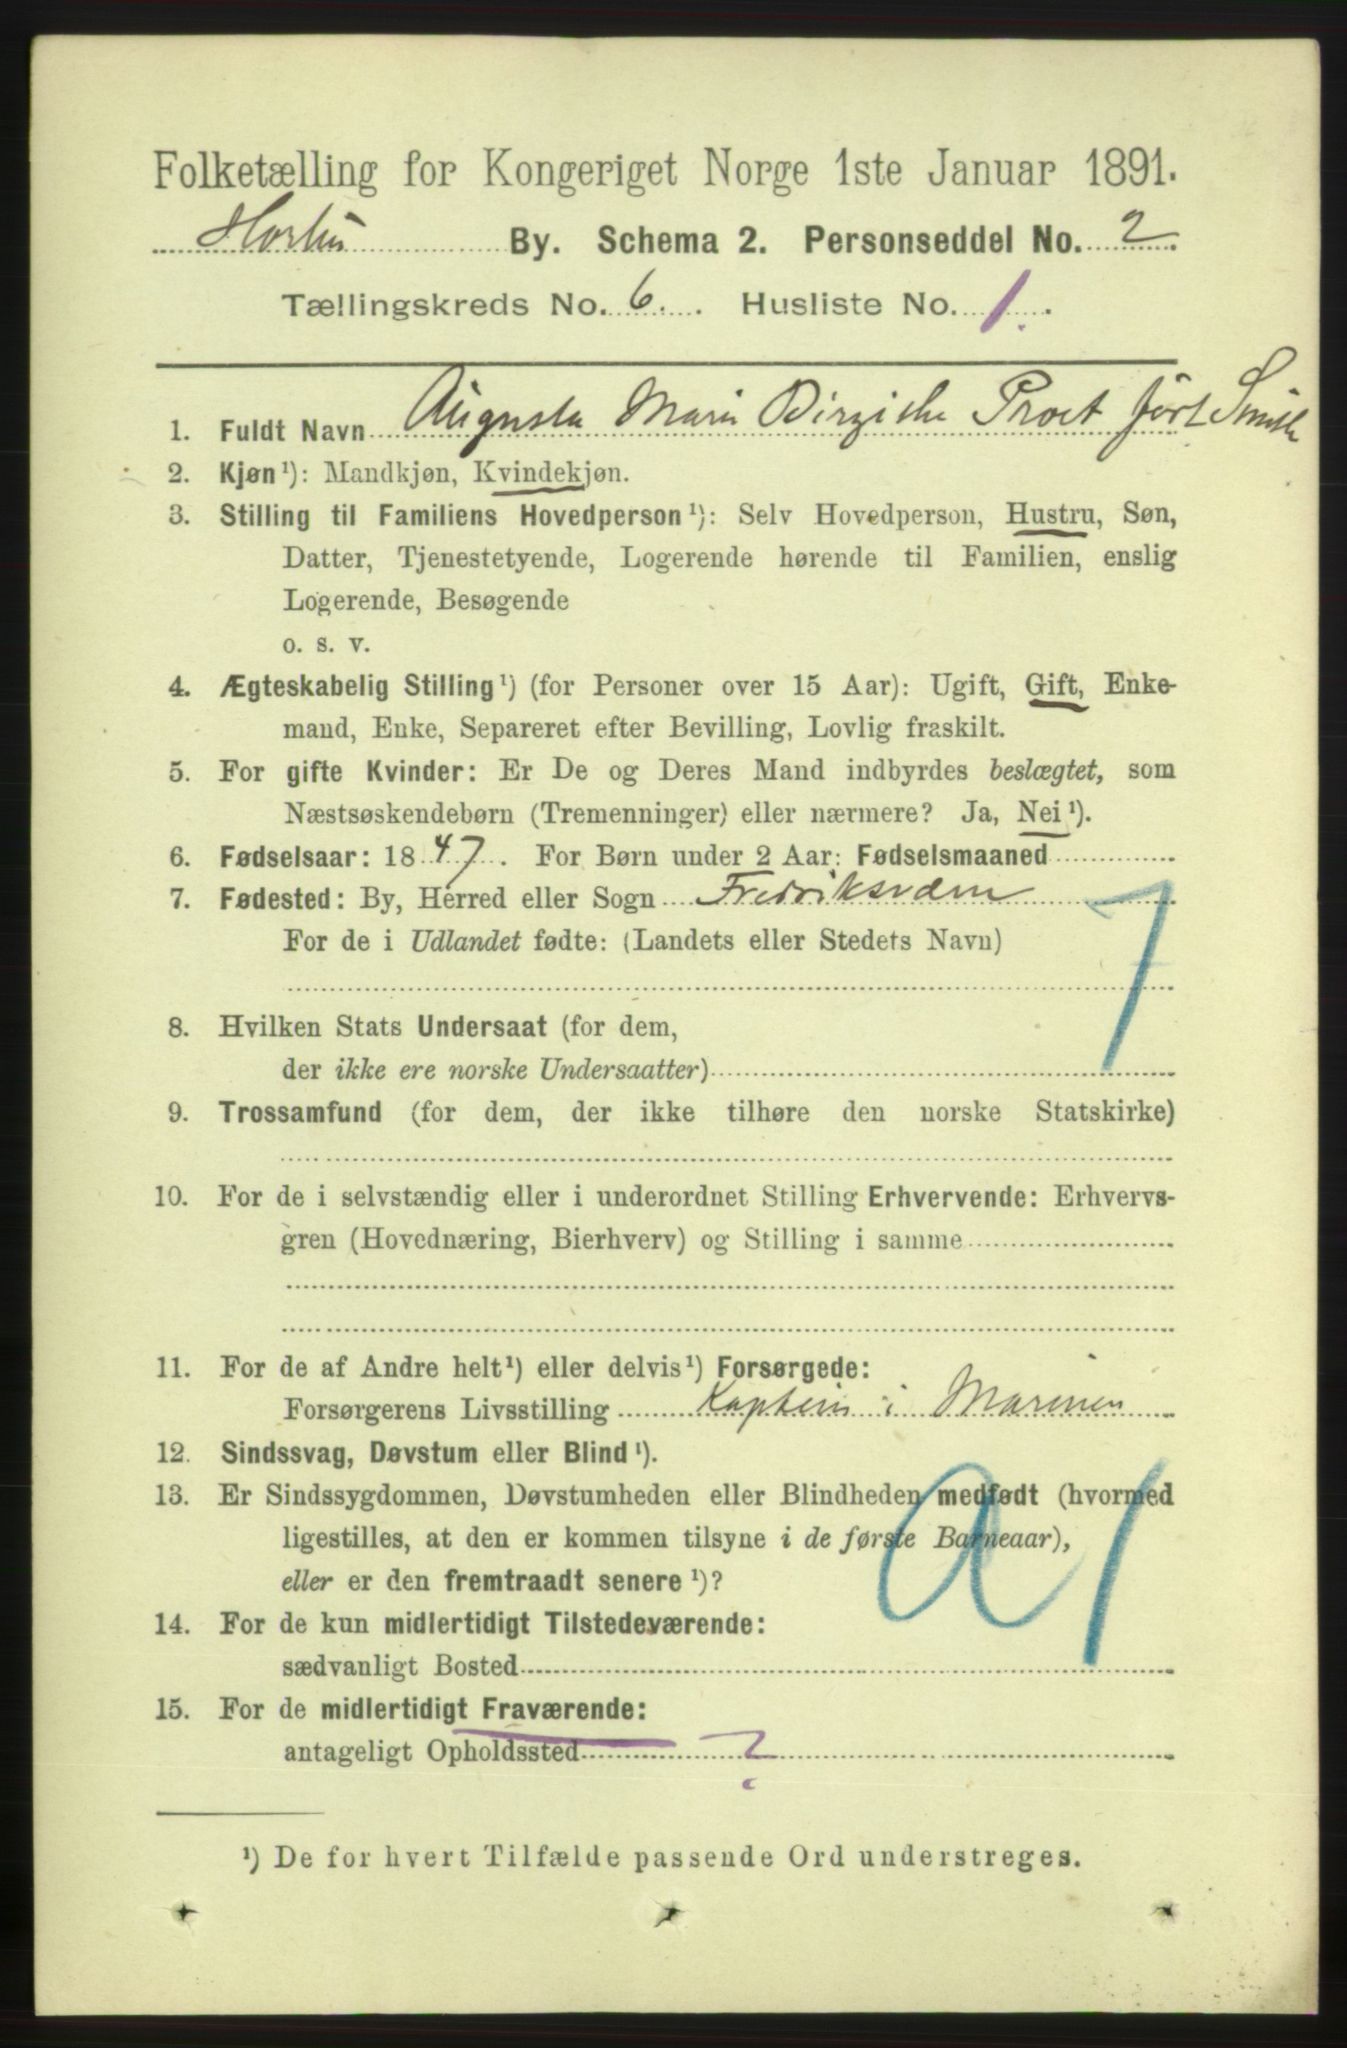 Folketælling for Kongeriget Norge 1ste Januar 1891.
Horten By. Schema 2. Personseddel No. 2
Tællingskreds No. 6. Husliste No. 1.
1. Fuldt Navn Augusta Marie Proet født Smith
2. Kjøn¹): Mandkjøn, Kvindekjøn.
3. Stilling til Familiens Hovedperson¹): Selv Hovedperson, Hustru, Søn,
Datter, Tjenestetyende, Logerende hørende til Familien, enslig
Logerende, Besøgende
o. s. v.
4. Ægteskabelig Stilling¹) (for Personer over 15 Aar): Ugift, Gift, Enke-
mand, Enke, Separeret efter Bevilling, Lovlig fraskilt.
5. For gifte Kvinder: Er De og Deres Mand indbyrdes beslægtet, som
Næstsøskendebørn (Tremenninger) eller nærmere? Ja, Nei¹).
6. Fødselsaar: 1847. For Børn under 2 Aar: Fødselsmaaned
7. Fødested: By, Herred eller Sogn Fredriksværn
For de i Udlandet fødte: (Landets eller Stedets Navn)
8. Hvilken Stats Undersaat (for dem,
der ikke ere norske Undersaatter)
9. Trossamfund (for dem, der ikke tilhøre den norske Statskirke)
10. For de i selvstændig eller i underordnet Stilling Erhvervende: Erhvervs-
gren (Hovednæring, Bierhverv) og Stilling i samme
11. For de af Andre helt¹) eller delvis¹) Forsørgede:
Forsørgerens Livsstilling Kaptein i Marinen
12. Sindssvag, Døvstum eller Blind¹).
13. Er Sindssygdommen, Døvstumheden eller Blindheden medfødt (hvormed
ligestilles, at den er kommen tilsyne i de første Barneaar),
eller er den fremtraadt senere¹)?
a 1
14. For de kun midlertidigt Tilstedeværende:
sædvanligt Bosted
15. For de midlertidigt Fraværende:
antageligt Opholdssted ?
¹) De for hvert Tilfælde passende Ord understreges.